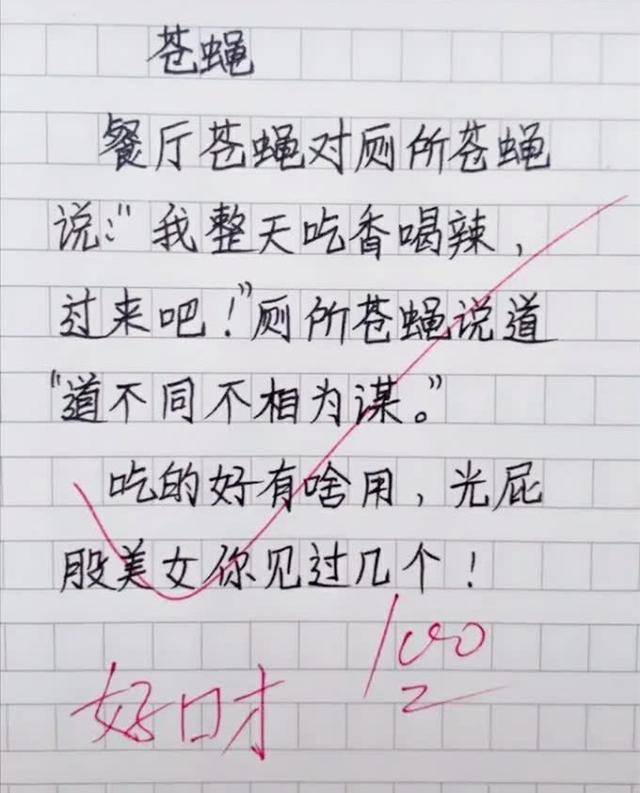 苍蝇
餐厅苍蝇对厕所苍蝇
说:"我整天吃香喝辣,
过来吧!"厕所苍蝇说道
"道不同不相为谋。"
吃的好有啥用,光屁
股美女你见过几个!
100
好口才